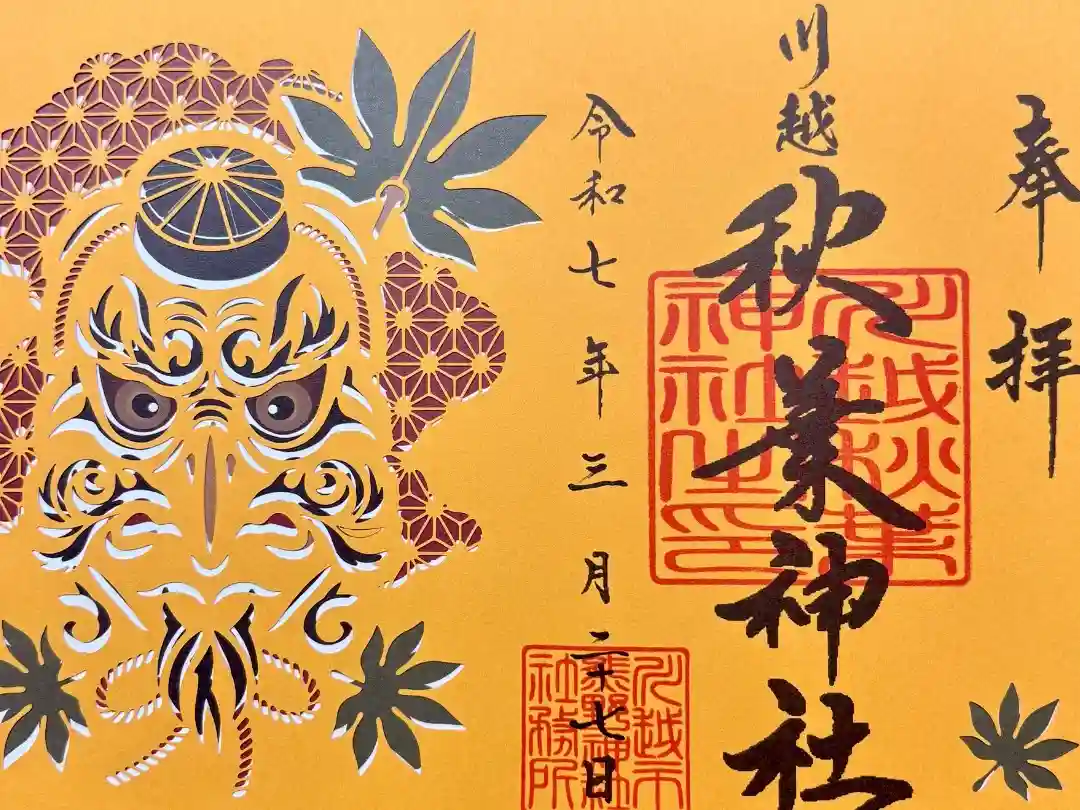 奉拝
川越
秋葉神社
川越秋葉
神社之印
令和七年三月二十七日
川越市
熊野神社
社務所